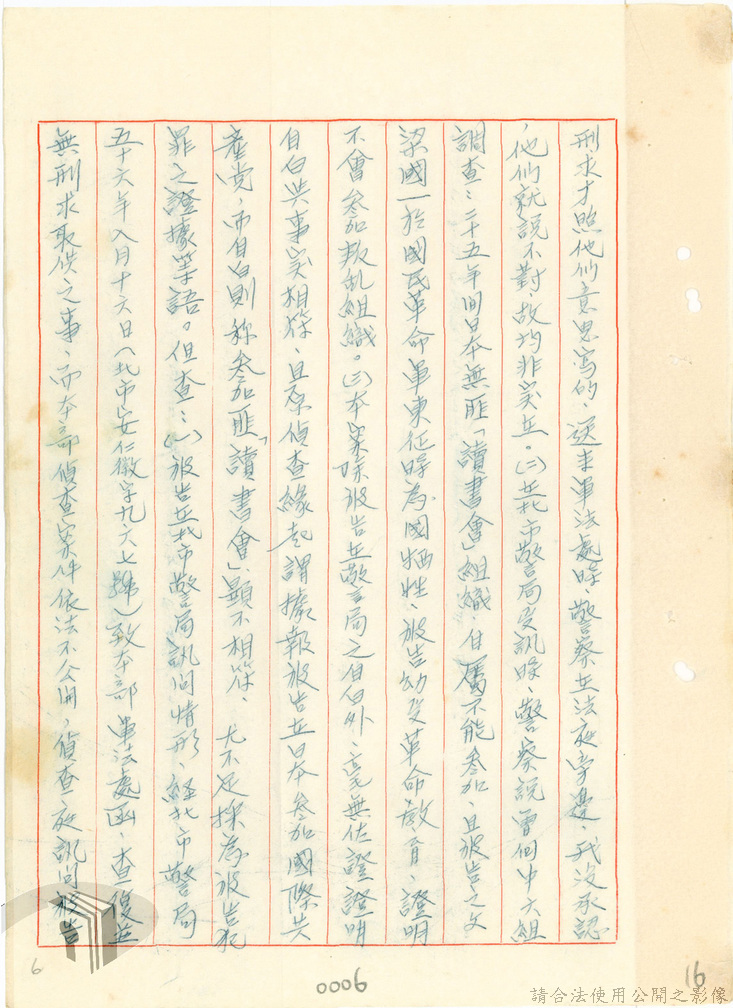 刑求才照他们意思寫的、送至軍法處時、警察在法庭旁邊、我沒承認
、他们就説不對、故均非实在。(二)在北市警局受訊時、警察説曾向中六組
調查:二十五年间日本無匪「讀書會」組織、自属不能參加、且被告之父
梁國一於國民革命軍東征時為國犧牲、被告幼受革命教育、證明
不會參加叛乱組織。(三)本案除被告在警局之自白外、毫無佐證證明
自白與事实相符、且原偵查緣起謂據報被告在日本參加國際共
產党、而自白則称參加匪「讀書會」顯不相符、尤不足採為被告犯
罪之證據等語。但查:(一)被告在北市警局訊问情形、経北市警局
五十六年八月十六日(北市安仁徵字九六七號)致本部軍法處函、查復並
無刑求取供之事、而本部偵查案件依法不公開,偵查庭訊问被告
6
0006
16
請合法使用公開之影像